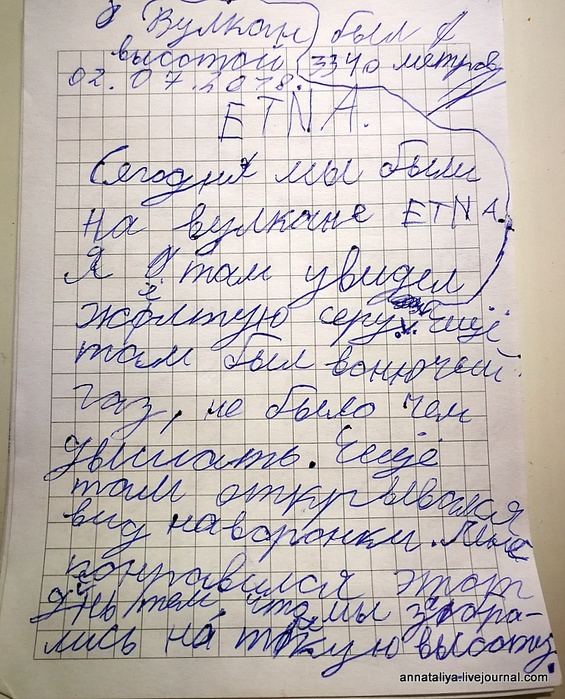 Вулкан был
высотой 3340 метров
02.07.2018.
ETNA.
Сегодня мы были
на вулкане ETNA.
Я там увидел
жёлтую серу. Ещё
там был вонючей
газ, не было чем
дышать. Ещё
там открывался
вид на воронки. Мне
понравился этот
день тем, что мы забра-
лись на такую высоту.
annataliya-livejournal.com